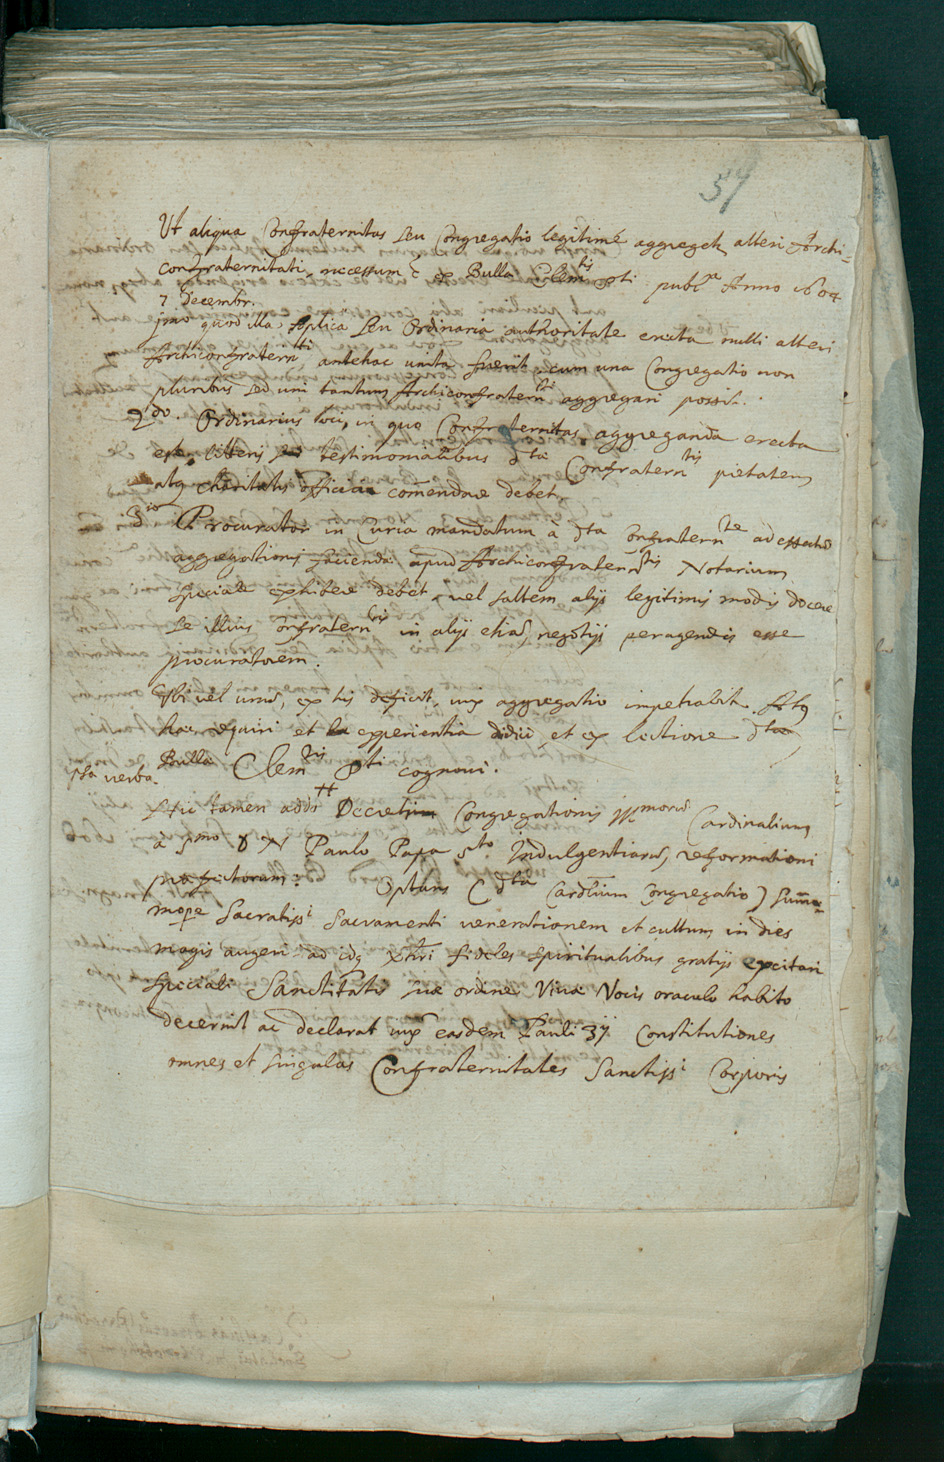 57
Ut aliqua Confraternitas seu Congregatio legitimé aggregetr alteri Archi-
confraternitati, necessum è ex Bulla Clemtis 8ti publta Anno 1604
7 Decembr.
jmo quod illa Aplica seu Ordinaria authoritate erecta nulli alteri
Archiconfraternti antehac unita fuerit, cum una Congregatio non
pluribus sed uni tantum Archiconfraternti aggregari possit.
2do. Ordinarius loci, in quo Confraternitas aggreganda erecta
est litteris testimonialibus dta Confraterntis pietatem
atq charitatis officia comendare debet
3io Procurator in Curia mandatum à dta Confraternte ad effectũ
aggregationis faciendae apud Archiconfraterntis Notarium
speciale exhibere debet, vel saltem alijs legitimis modis docere
se illius Confraterntis in alijs etiã negotijs peragendis esse
procuratorem.
Ubi vel unũ, ex his deficit, aggregatio impetrabitr. Atq
haec requiri et experientia didici, et ex lectione dta
Bulla Clemtis 8ti cognovi.
verba
Hic tamen adds Decretum Congregationis Illmorũ Cardinalium
à smo D N Paulo Papa 5to Indulgentiarũ, reformationi
praefectorum: Optans (dta Cardlium Congregatio) summo-
mope Sacratissi Sacramenti venerationem et cultum in dies
magis augeri ad idq Xpi fideles spiritualibus gratijs excitari
speciali Sanctitatis suae ordine Vivae Vocis oraculo habito
decernit ac declarat easdem Pauli 3ij Constitutiones
omnes et singulas Confraternitates Sanctissi Corporis